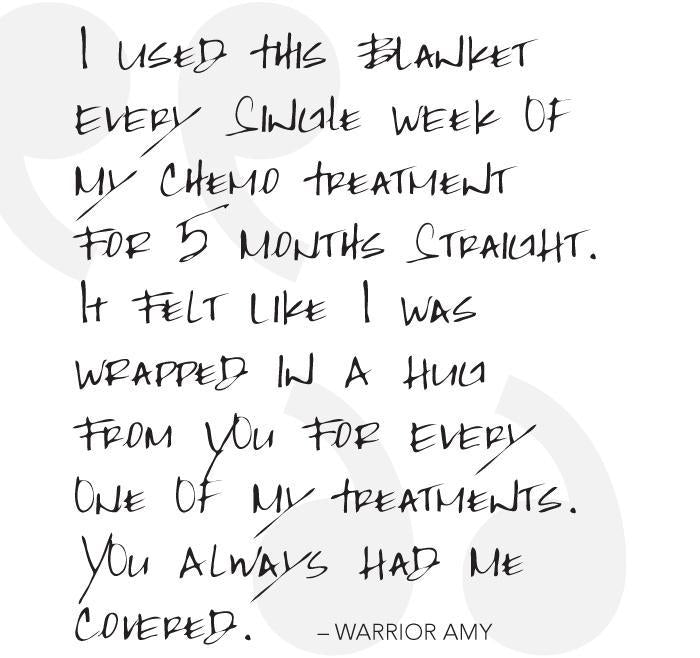 I USED THIS BLANKET
EVERY SINGLE WEEK OF
MY CHEMO TREATMENT
FOR 5 MONTHS STRAIGHT.
It FELT LIKE I WAS
WRAPPED IN A HUG
FROM YOU FOR EVERY
ONE OF MY TREATMENTS.
YOU ALWAYS HAD ME
COVERED. – WARRIOR AMY